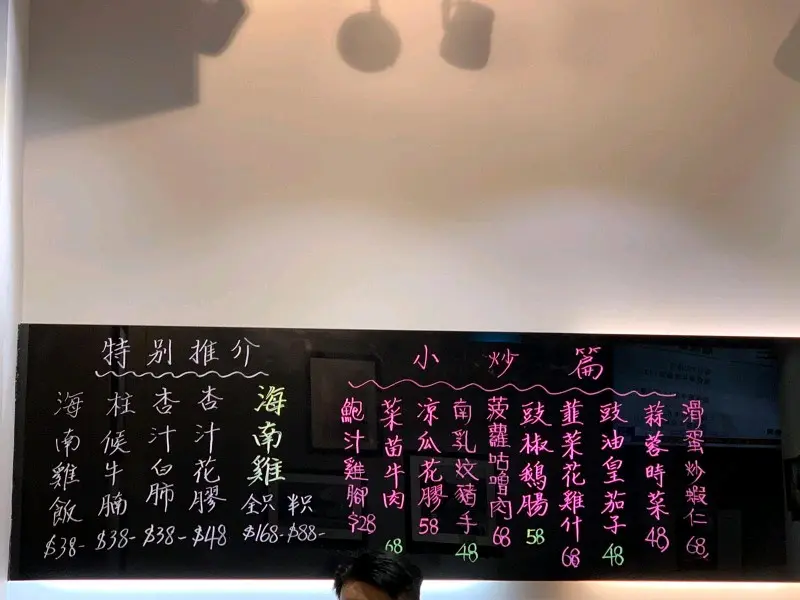 特别推介
海南雞 全只$168- 半只$88-
杏汁花膠 $48
杏汁白肺 $38-
柱候牛腩 $38-
海南雞飯 $38-
小炒篇
滑蛋炒蝦仁 68
蒜蓉時菜 48
豉油皇茄子 48
韮菜花雞什 68
豉椒鵝腸 58
菠蘿咕嚕肉 68
南乳炆豬手 48
凉瓜花膠 58
菜苗牛肉 68
鮑汁雞腳 $28